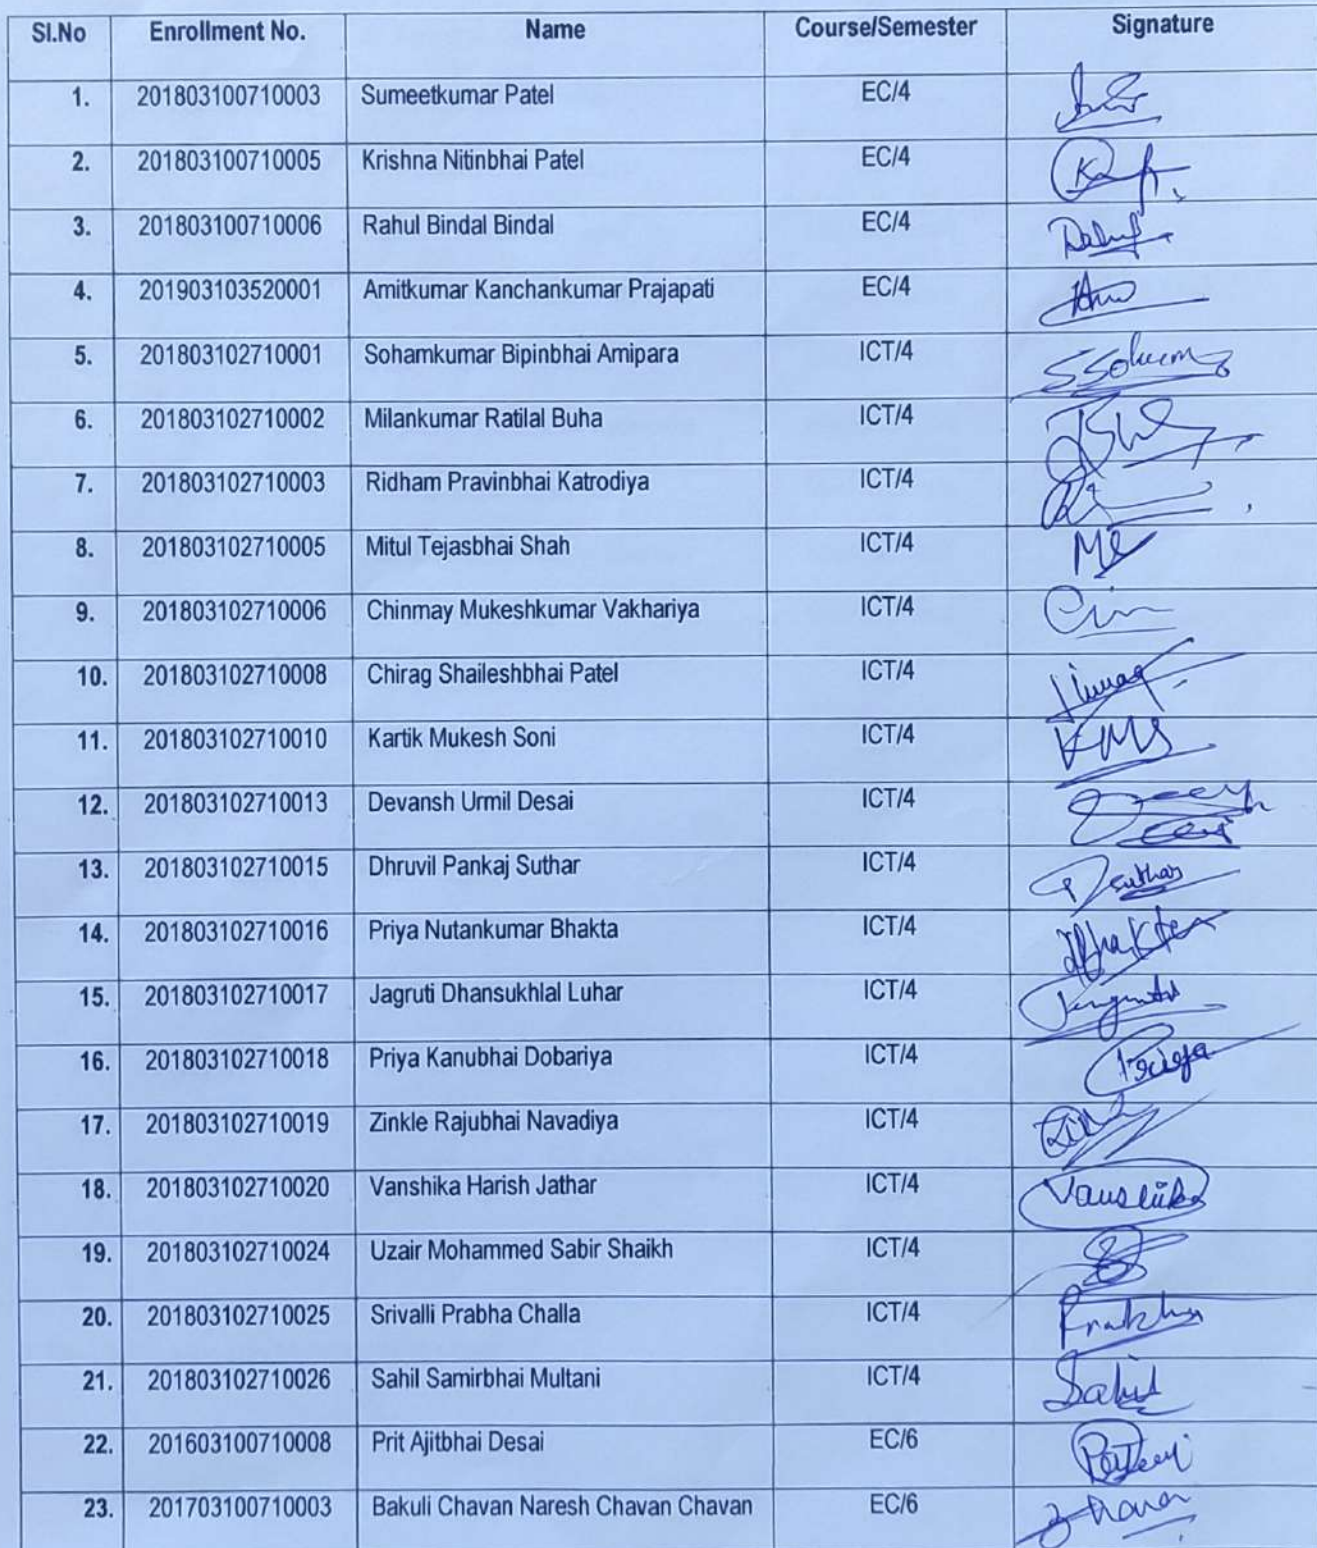 Sl.No Enrollment No. Name Course/Semester Signature
1. 201803100710003 Sumeetkumar Patel EC/4
2. 201803100710005 Krishna Nitinbhai Patel EC/4
3. 201803100710006 Rahul Bindal Bindal EC/4
4. 201903103520001 Amitkumar Kanchankumar Prajapati EC/4
5. 201803102710001 Sohamkumar Bipinbhai Amipara ICT/4
6. 201803102710002 Milankumar Ratilal Buha ICT/4
7. 201803102710003 Ridham Pravinbhai Katrodiya ICT/4
8. 201803102710005 Mitul Tejasbhai Shah ICT/4
9. 201803102710006 Chinmay Mukeshkumar Vakhariya ICT/4
10. 201803102710008 Chirag Shaileshbhai Patel ICT/4
11. 201803102710010 Kartik Mukesh Soni ICT/4 KMS
12. 201803102710013 Devansh Urmil Desai ICT/4
13. 201803102710015 Dhruvil Pankaj Suthar ICT/4 Dsuthar
14. 201803102710016 Priya Nutankumar Bhakta ICT/4
15. 201803102710017 Jagruti Dhansukhlal Luhar ICT/4
16. 201803102710018 Priya Kanubhai Dobariya ICT/4 Priya
17. 201803102710019 Zinkle Rajubhai Navadiya ICT/4
18. 201803102710020 Vanshika Harish Jathar ICT/4 Vanshika
19. 201803102710024 Uzair Mohammed Sabir Shaikh ICT/4
20. 201803102710025 Srivalli Prabha Challa ICT/4
21. 201803102710026 Sahil Samirbhai Multani ICT/4 Sahil
22. 201603100710008 Prit Ajitbhai Desai EC/6
23. 201703100710003 Bakuli Chavan Naresh Chavan Chavan EC/6